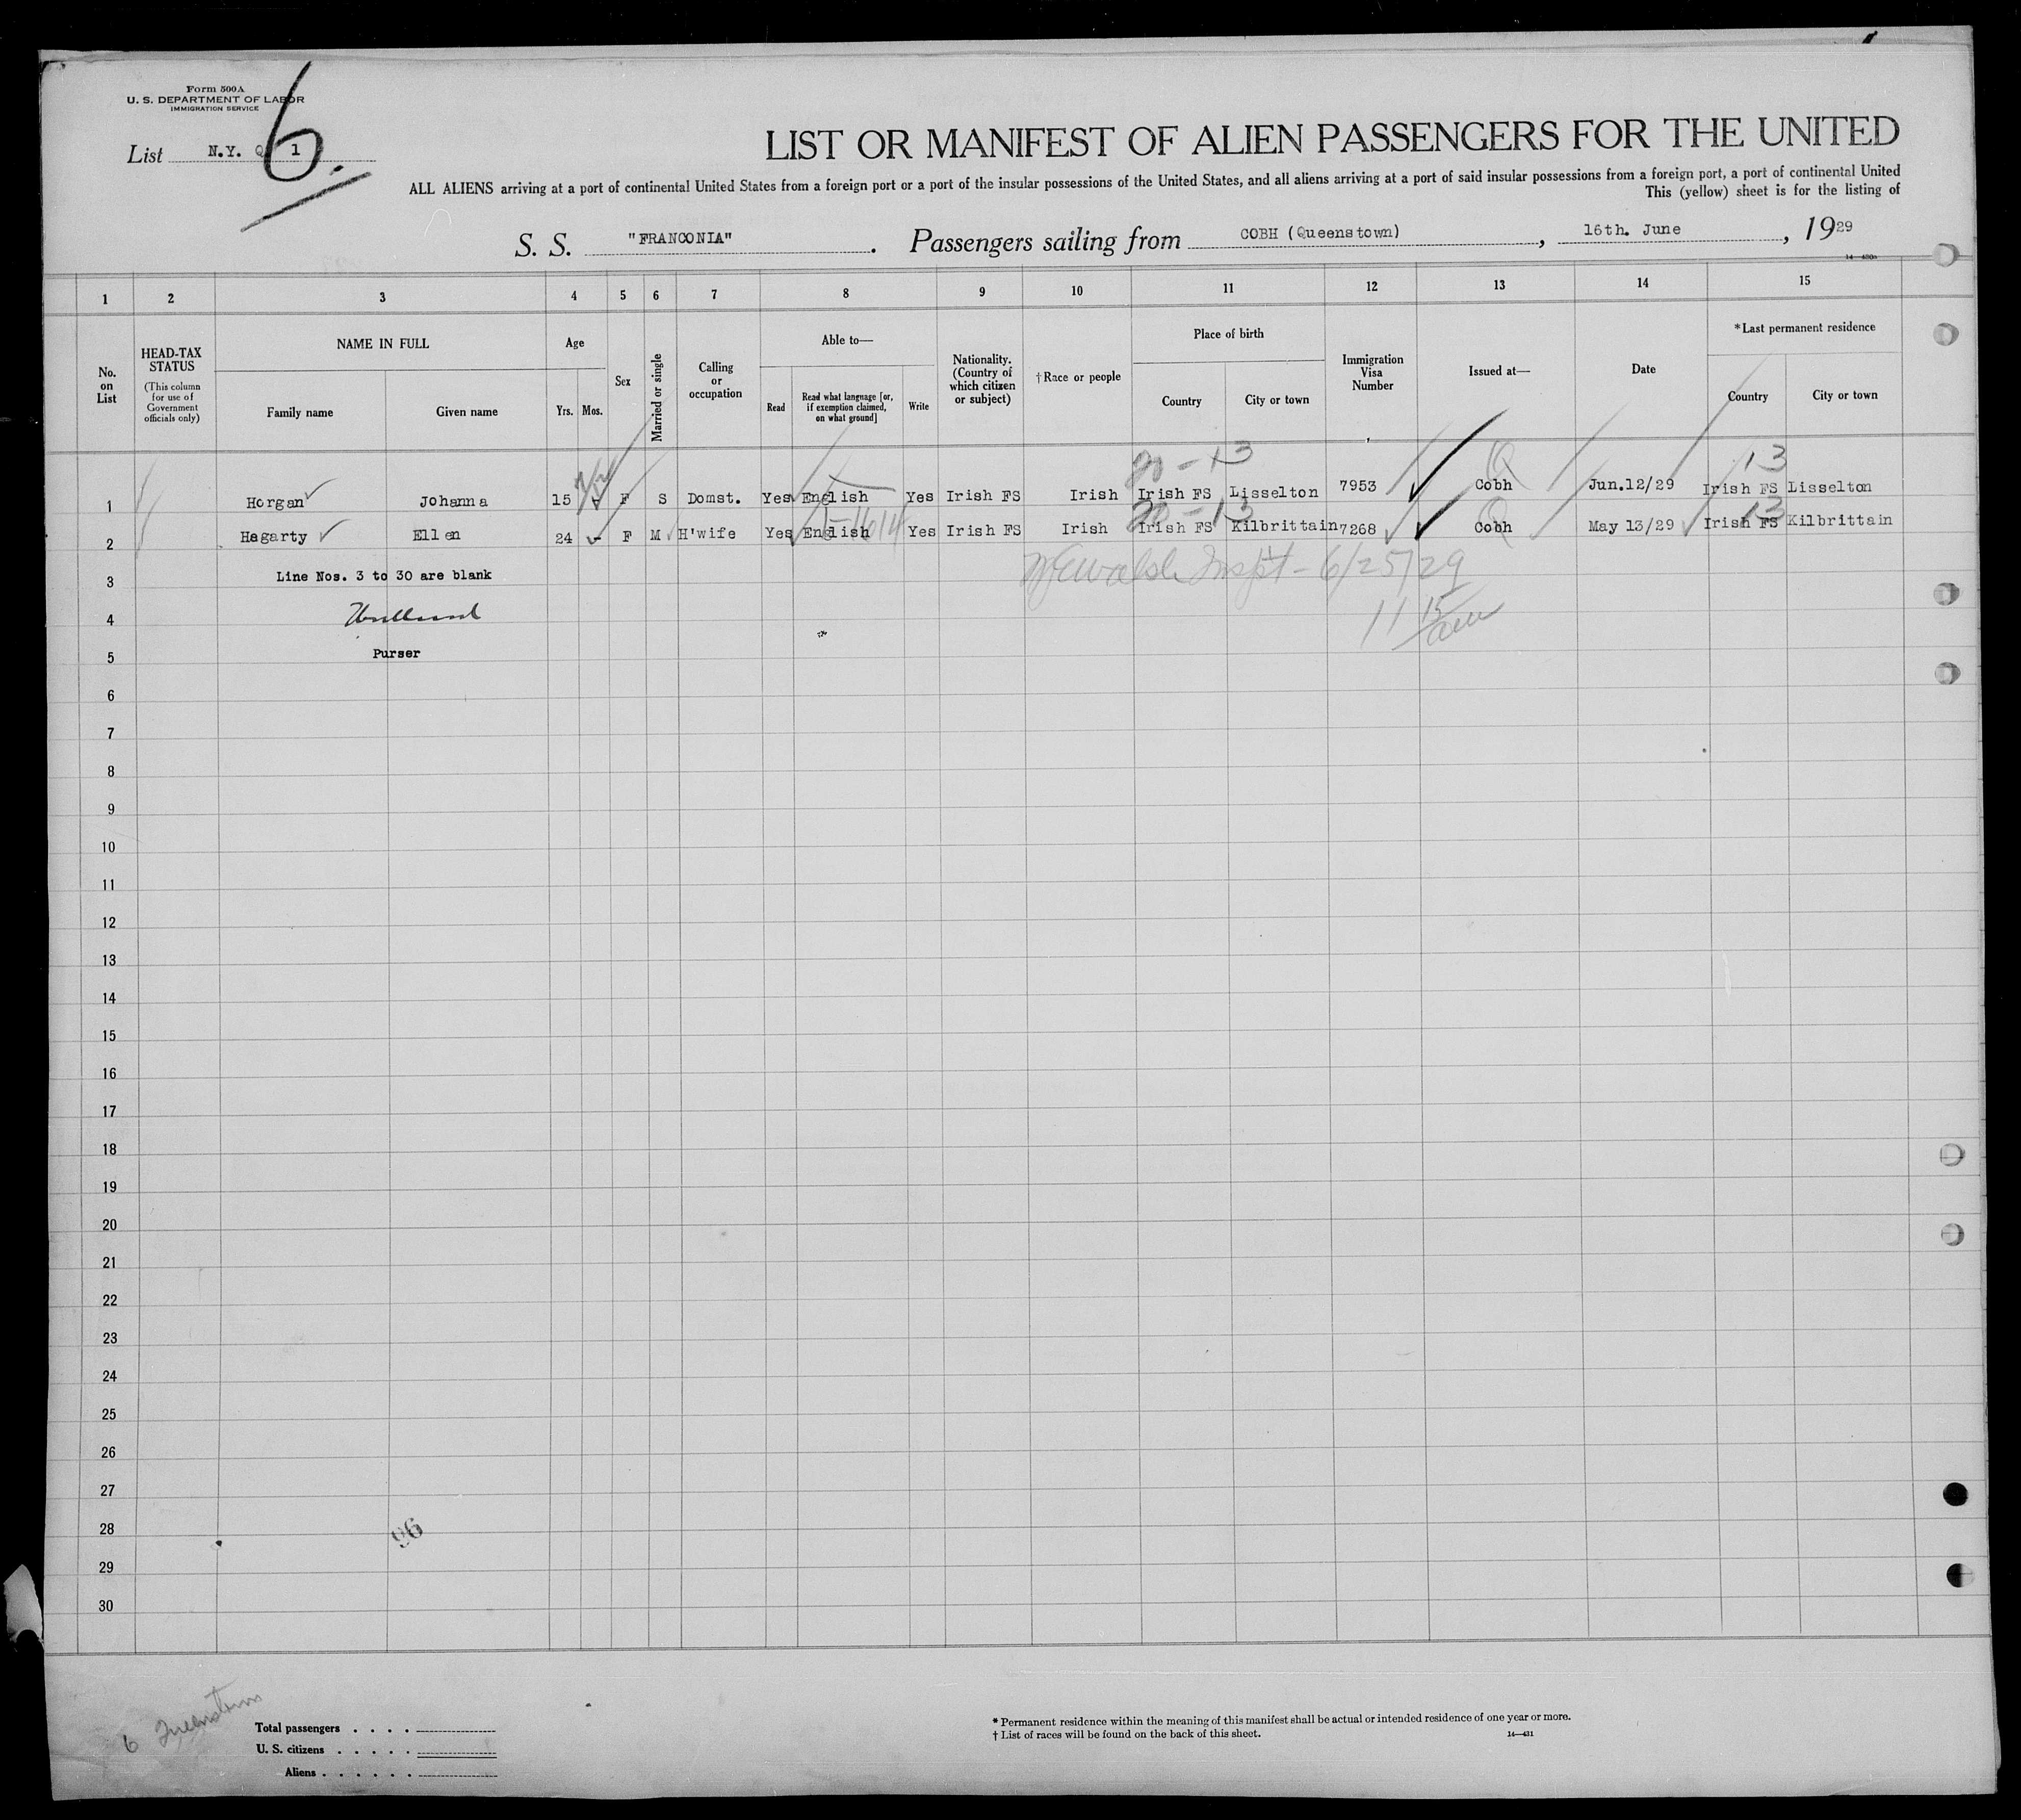 Form 500A
U. S. DEPARTMENT OF LABOR
IMMIGRATION SERVICE
List N.Y. Q 1
6.
LIST OR MANIFEST OF ALIEN PASSENGERS FOR THE UNITED
ALL ALIENS arriving at a port of continental United States from a foreign port or a port of the insular possessions of the United States, and all aliens arriving at a port of said insular possessions from a foreign port, a port of continental United
This (yellow) sheet is for the listing of
S. S. "FRANCONIA". Passengers sailing from COBH (Queenstown), 16th. June, 1929
1 2 3 4 5 6 7 8 9 10 11 12 13 14 15
No. on List
HEAD-TAX STATUS
(This column for use of Government officials only)
NAME IN FULL
Family name
Given name
Age
Yrs. Mos.
Sex
Married or single
Calling or occupation
Able to—
Read
Read what language [or, if exemption claimed, on what ground]
Write
Nationality. (Country of which citizen or subject)
†Race or people
Place of birth
Country
City or town
Immigration Visa Number
Issued at—
Date
*Last permanent residence
Country
City or town
13 13
1 Horgan Johanna 15 F S Domst. Yes English Yes Irish FS Irish Irish FS Lisselton 7953 Cobh Jun.12/29 Irish FS Lisselton
13 13
2 Hagarty Ellen 24 - F M H'wife Yes English Yes Irish FS Irish Irish FS Kilbrittain 7268 Cobh May 13/29 Irish FS Kilbrittain
3 Line Nos. 3 to 30 are blank Walsh Inspt - 6/25/29
4 11 15/am
5 Purser
6
7
8
9
10
11
12
13
14
15
16
17
18
19
20
21
22
23
24
25
26
27
28 96
29
30
6 Queenstown
Total passengers . . . .
U. S. citizens . . . . .
Aliens . . . . . .
* Permanent residence within the meaning of this manifest shall be actual or intended residence of one year or more.
† List of races will be found on the back of this sheet.
14—431